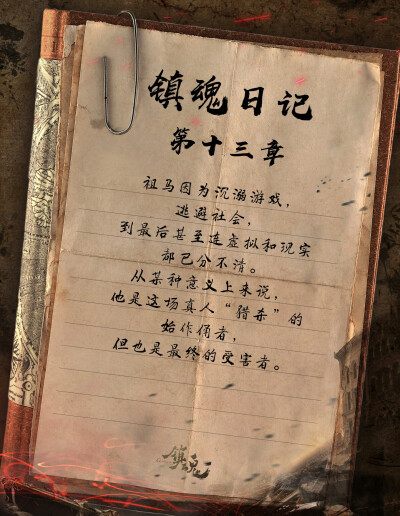 镇魂日记
第十三章
祖马因为沉溺游戏，
逃避社会，
到最后甚至连虚拟和现实
都已分不清。
从某种意义上来说，
他是这场真人“猎杀”的
始作俑者，
但也是最终的受害者。
镇魂